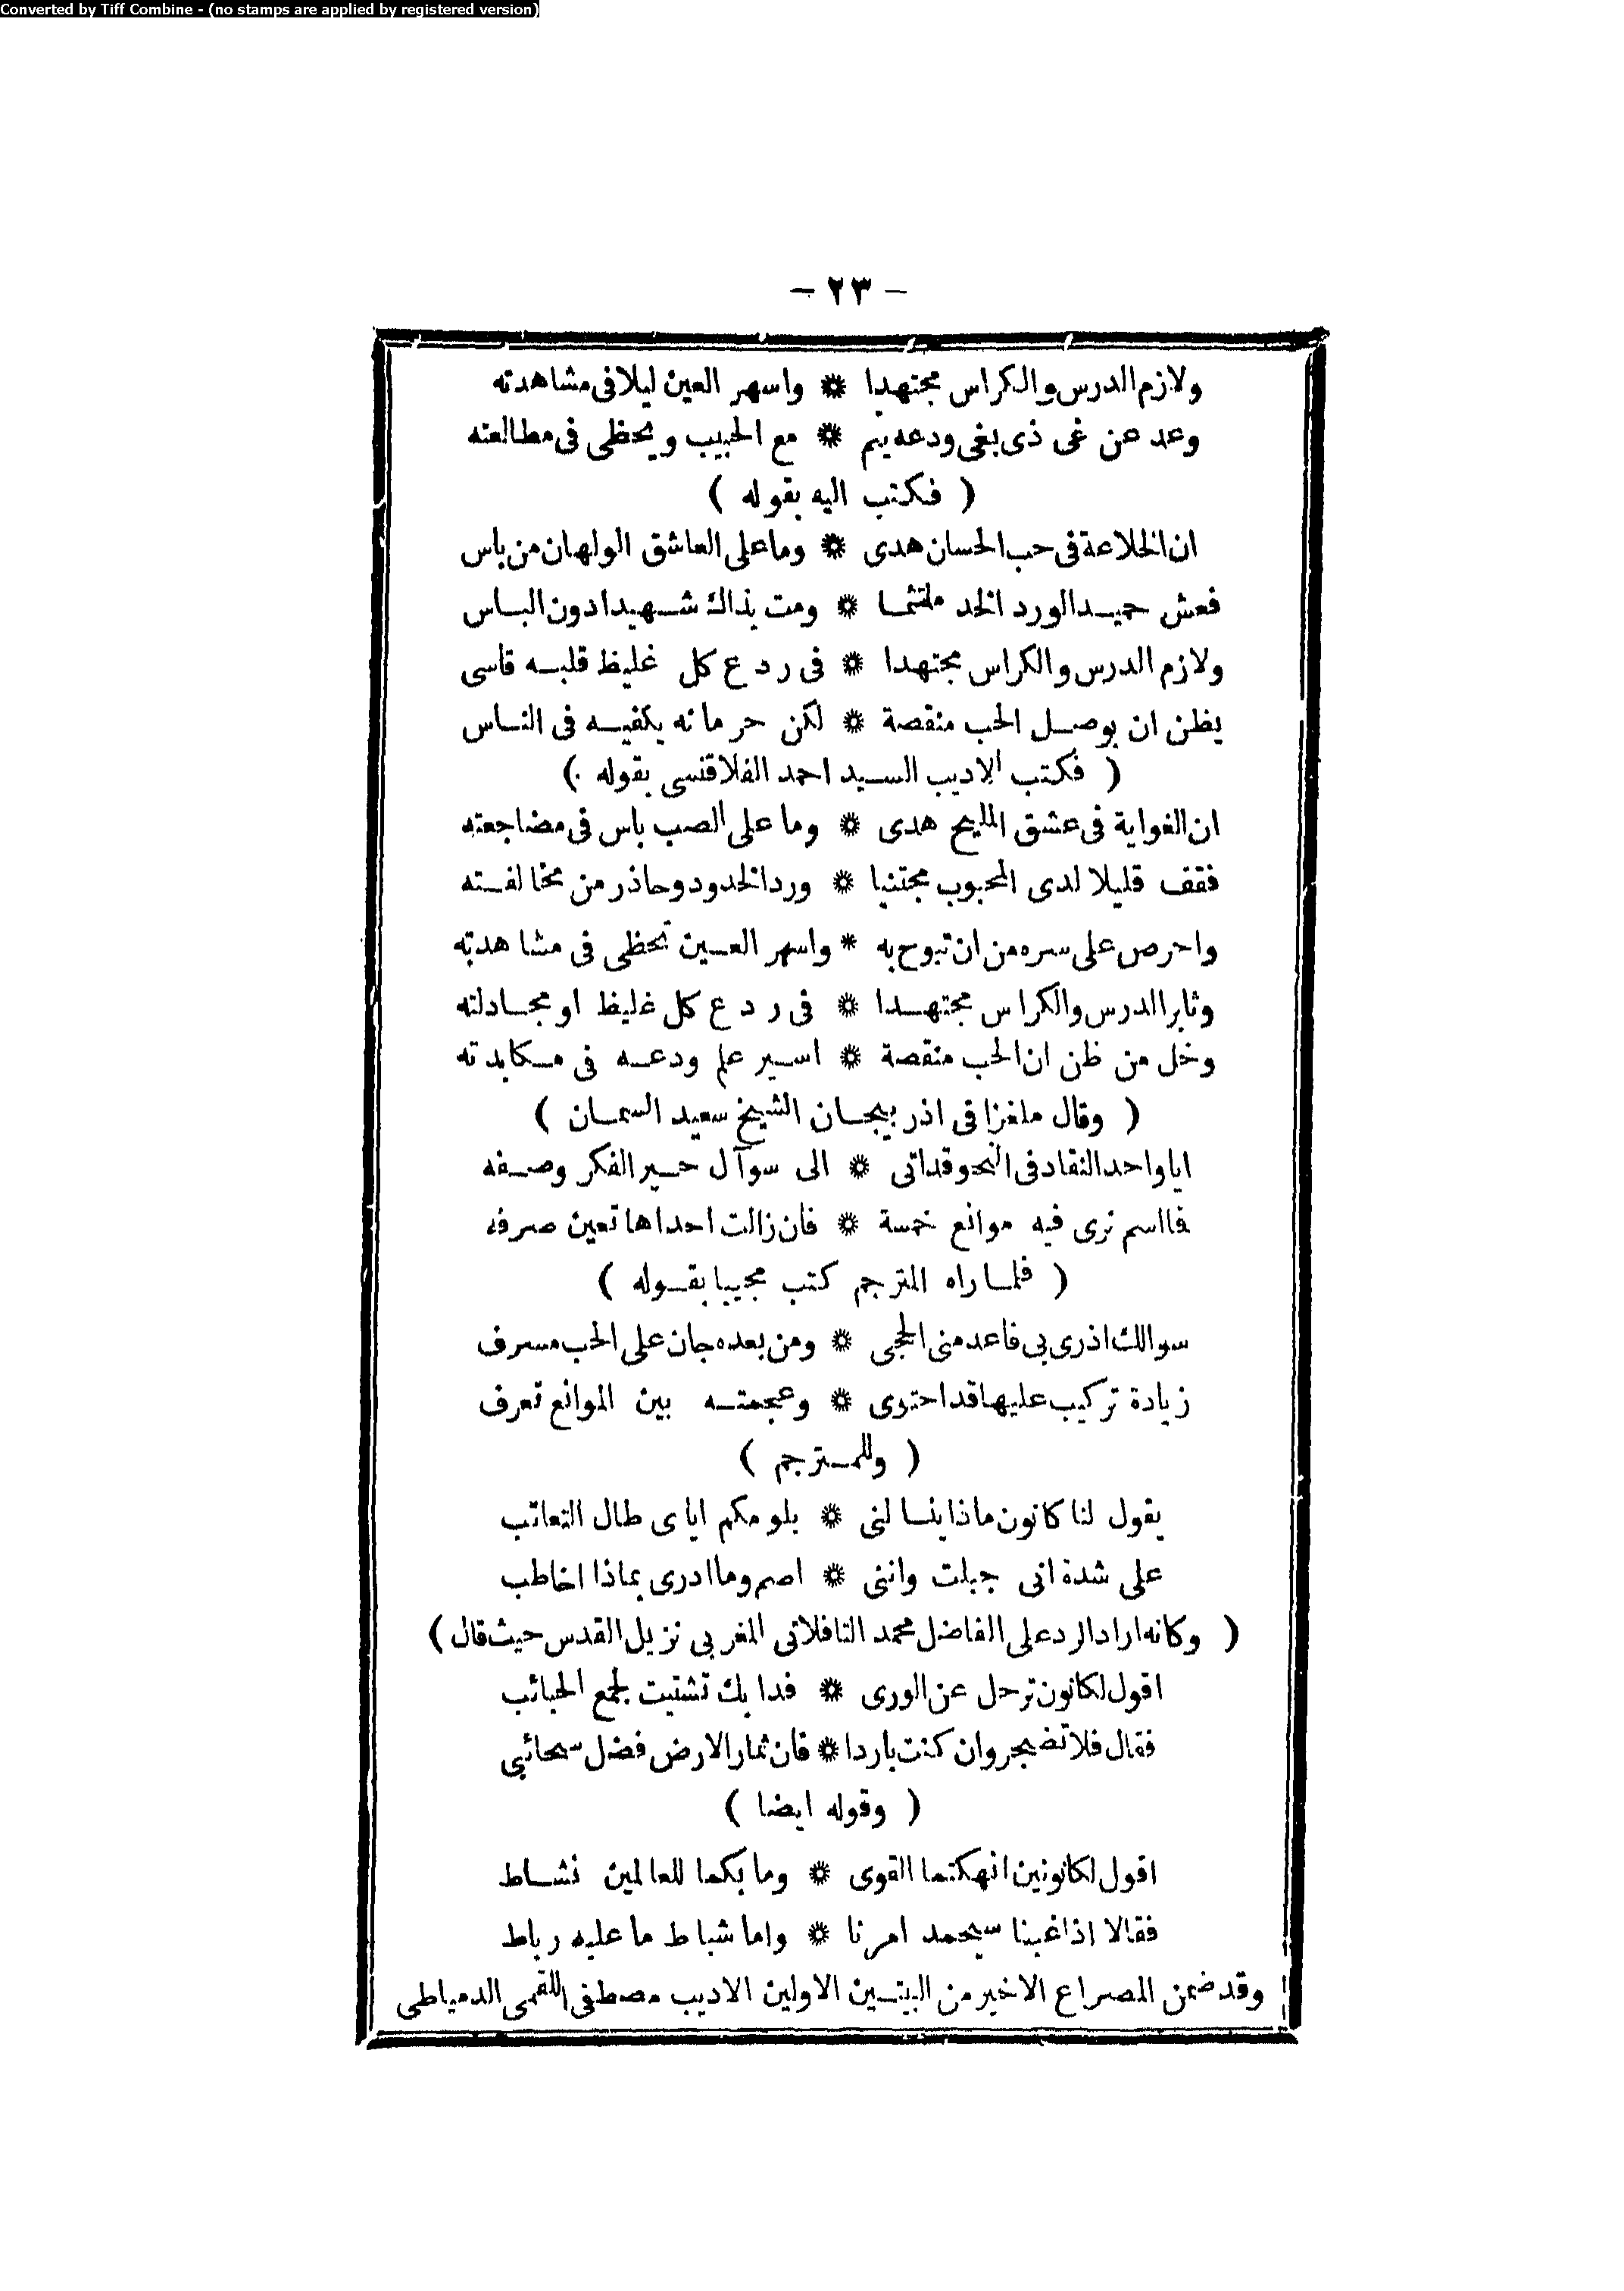 Converted by Tiff Combine - (no stamps are applied by registered version)
- ٢٣ -
ولازم الدرس والكراس مجتهدا * واسهر العين ليلا فى مشاهدته
وعد عن غى ذى بغى ودعه يتم * مع الحبيب ويحظى فى مطالعته
( فكتب اليه بقوله )
ان الخلاعة فى حب الحسان هدى * وما على العاشق الولهان من باس
فعش حميد الورد الخد ملتثما * ومت بذاك شهيدا دون الباس
ولازم الدرس والكراس مجتهدا * فى ردع كل غليظ قلبه قاسى
يظن ان بوصل الحب منقصة * لكن حرمانه يكفيه فى الناس
( فكتب الاديب السيد احمد الفلاقنسى بقوله )
ان الغواية فى عشق المليح هدى * وما على الصب باس فى مضاجعته
فقف قليلا لدى المحبوب مجتنيا * ورد الخدود وحاذر من مخالفته
واحرص على سره من ان تبوح به * واسهر العين تحظى فى مشاهدته
وثابر الدرس والكراس مجتهدا * فى ردع كل غليظ او مجادلته
وخل من ظن ان الحب منقصة * اسير علم ودعه فى مكابدته
( وقال ملغزا فى اذربيجان الشيخ سعيد السمان )
ايا واحد النقاد فى النحو قد اتى * الى سوآل حير الفكر وصفه
فااسم نرى فيه موانع خمسة * فان زالت احداها تعين صرفه
( فلما راه المترجم كتب مجيبا بقوله )
سوالك اذرى بى فاعد منى الحجى * ومن بعده جان على الحب مسرف
زيادة تركيب عليها قد احتوى * وعجمته بين الموانع تعرف
( وللمترجم )
يقول لنا كانون ماذا ينالنى * بلومكم اياى طال التعاتب
على شدة انى جبلت واننى * اصم وما ادرى بماذا اخاطب
( وكانه اراد الرد على الفاضل محمد التافلاتى المغربى نزيل القدس حيث قال )
اقول لكانون ترحل عن الورى * فدابك تشتيت لجمع الحبائب
فقال فلا تضجر وان كنت باردا * فان ثمار الارض فضل سحائبى
( وقوله ايضا )
اقول لكانونين انهكتما القوى * وما بكما للعالمين نشاط
فقالا اذا غبنا سيحمد امرنا * واما شباط ما عليه رباط
وقد ضمن المصراع الاخير من البيتين الاولين الاديب مصطفى اللقمى الدمياطى